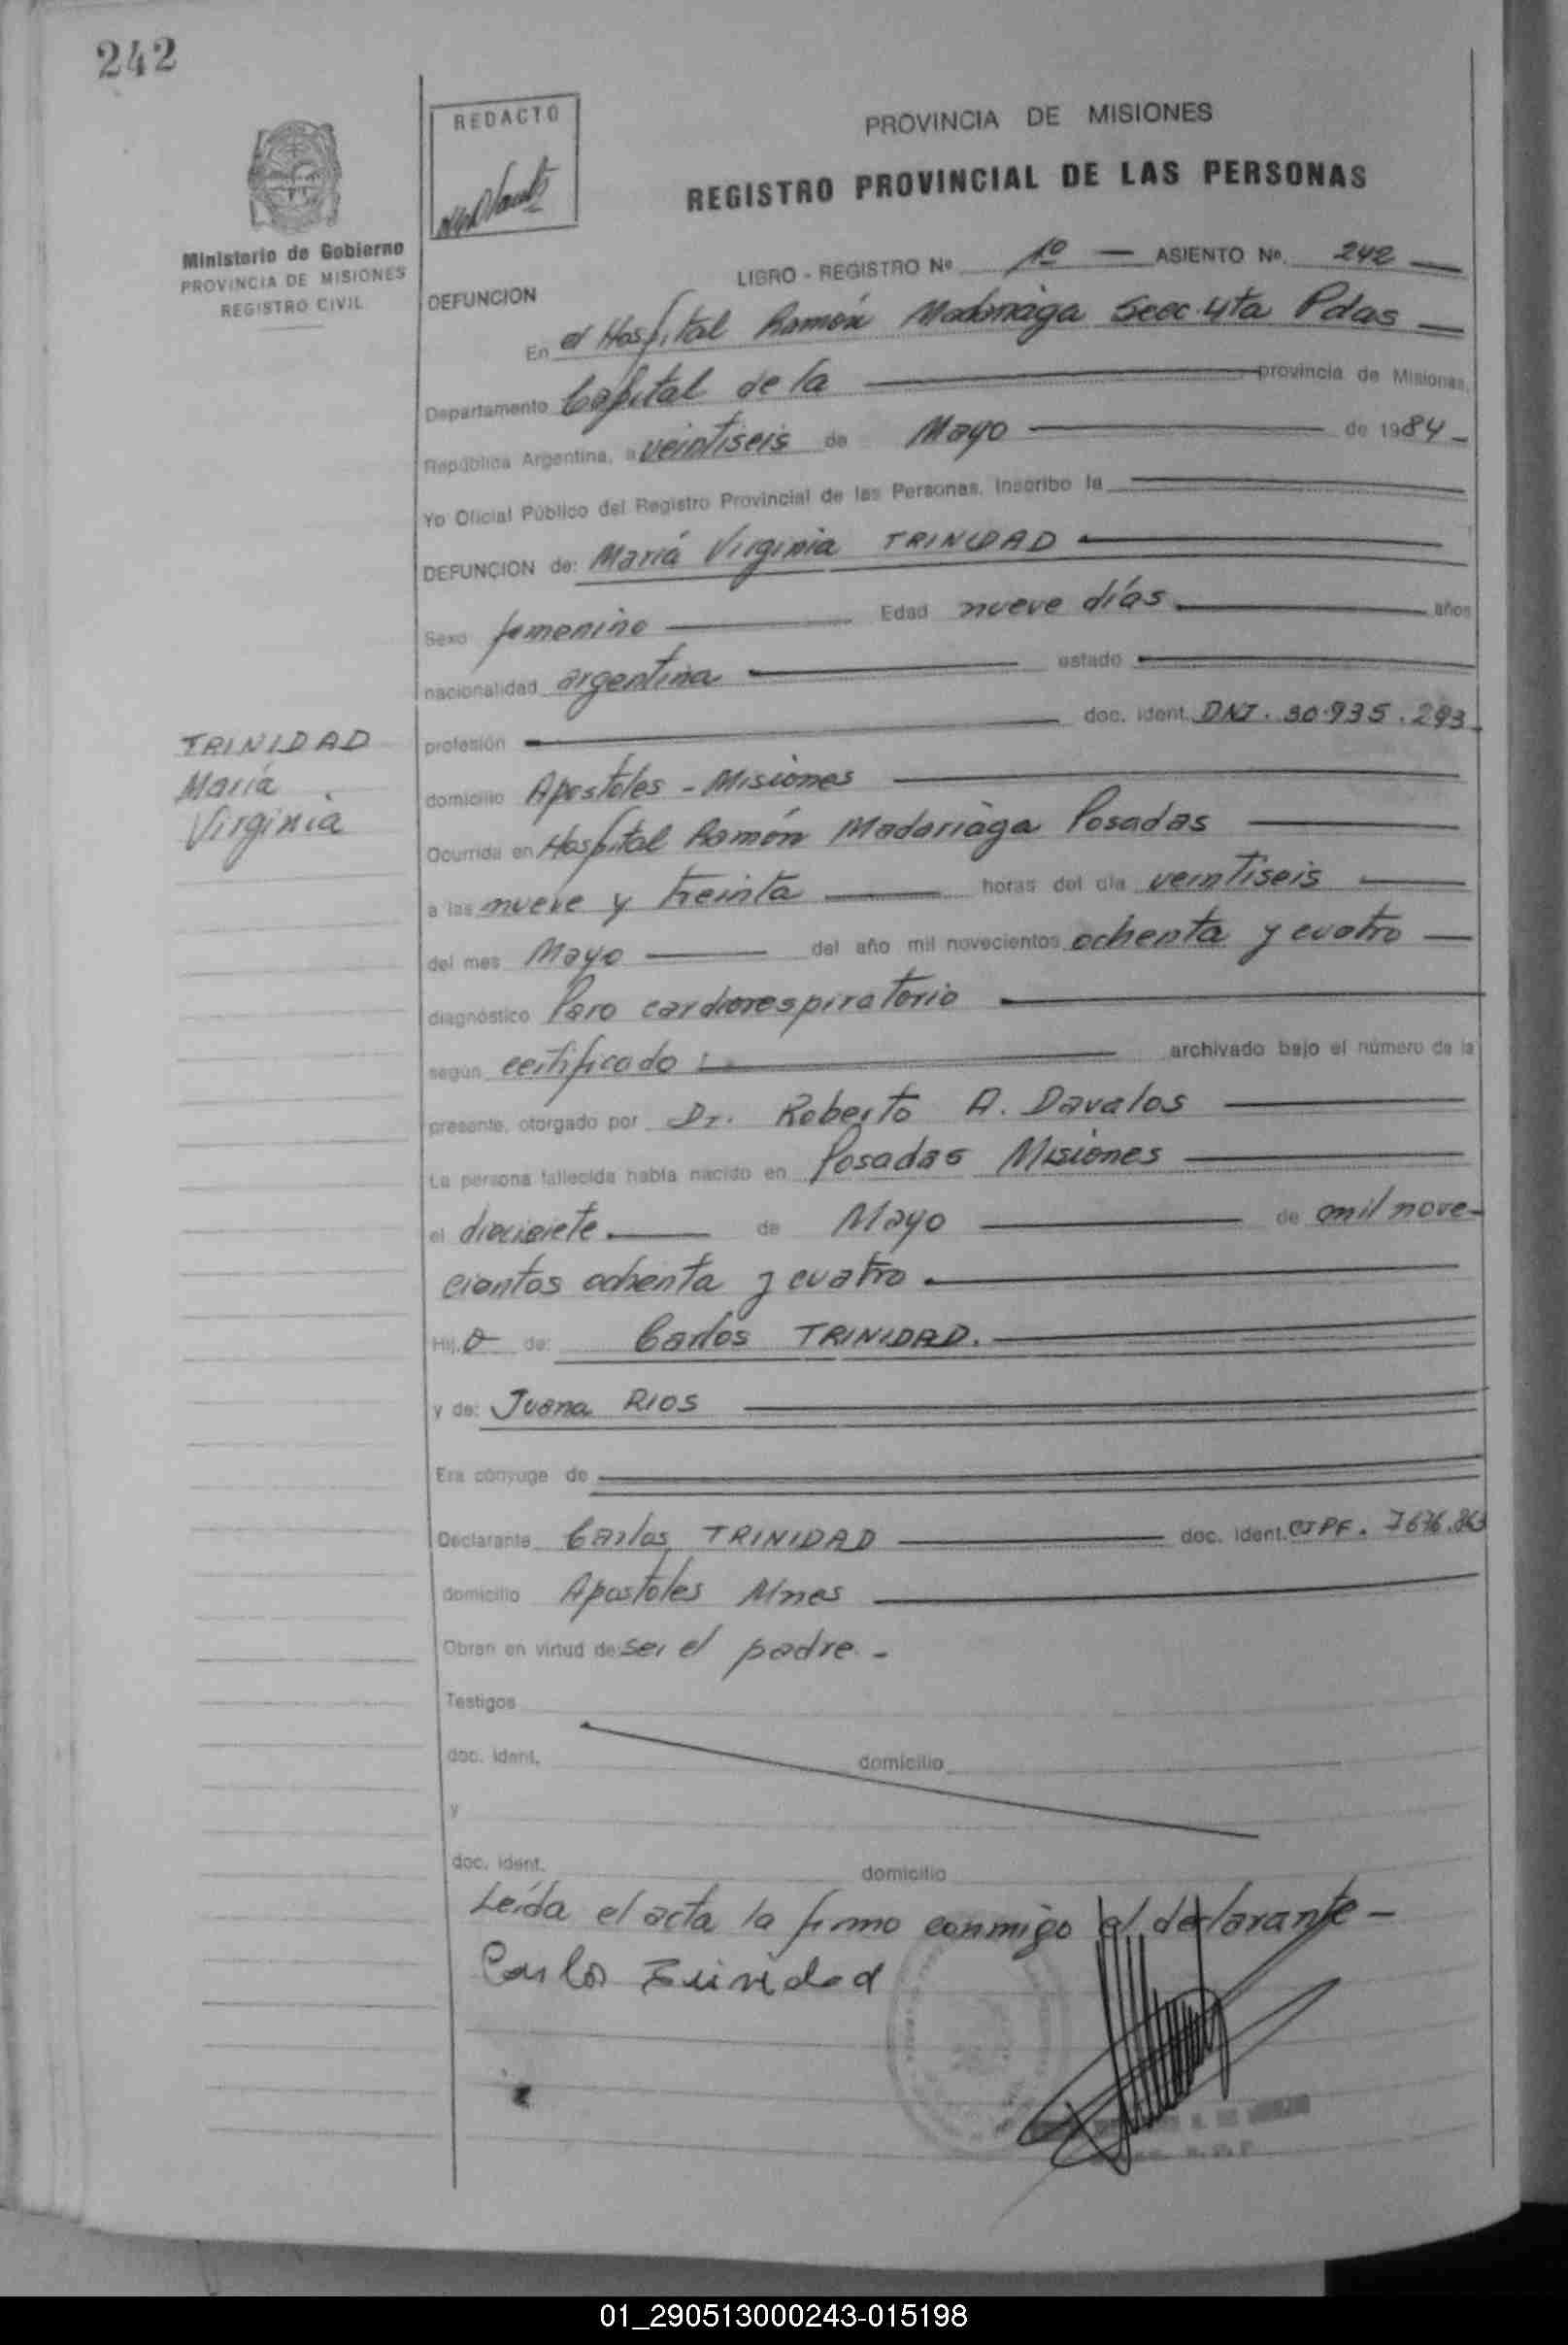 242
REDACTO
PROVINCIA DE MISIONES
REGISTRO PROVINCIAL DE LAS PERSONAS
Ministerio de Gobierno
PROVINCIA DE MISIONES
REGISTRO CIVIL
LIBRO - REGISTRO Nº 1º — ASIENTO Nº 242 —
DEFUNCION
En el Hospital Ramón Madariaga Secc 4ta Pdas —
Departamento Capital de la — provincia de Misiones,
República Argentina, a veintiseis de Mayo — de 1984 -
Yo Oficial Público del Registro Provincial de las Personas, inscribo la
DEFUNCION de: María Virginia TRINIDAD
Sexo femenino — Edad nueve días — años
nacionalidad argentina — estado —
profesión — doc. ident. DNI. 30.935.293
TRINIDAD
María
Virginia
domicilio Apostoles - Misiones —
Ocurrida en Hospital Ramón Madariaga Posadas —
a las nueve y treinta — horas del día veintiseis —
del mes Mayo — del año mil novecientos ochenta y cuatro —
diagnóstico Paro cardiorespiratorio —
según certificado : — archivado bajo el número de la
presente, otorgado por Dr. Roberto A. Davalos —
La persona fallecida había nacido en Posadas Misiones —
el diecisiete — de Mayo — de mil nove-
cientos ochenta y cuatro —
Hij a de: Carlos TRINIDAD. —
y de: Juana RIOS —
Era cónyuge de —
Declarante Carlos TRINIDAD — doc. ident. CIPF. 7676.863
domicilio Apostoles Mnes —
Obran en virtud de ser el padre. -
Testigos
doc. ident. domicilio
y
doc. ident. domicilio
Leída el acta la firmo conmigo el declarante -
Carlos Trinidad
01_290513000243-015198